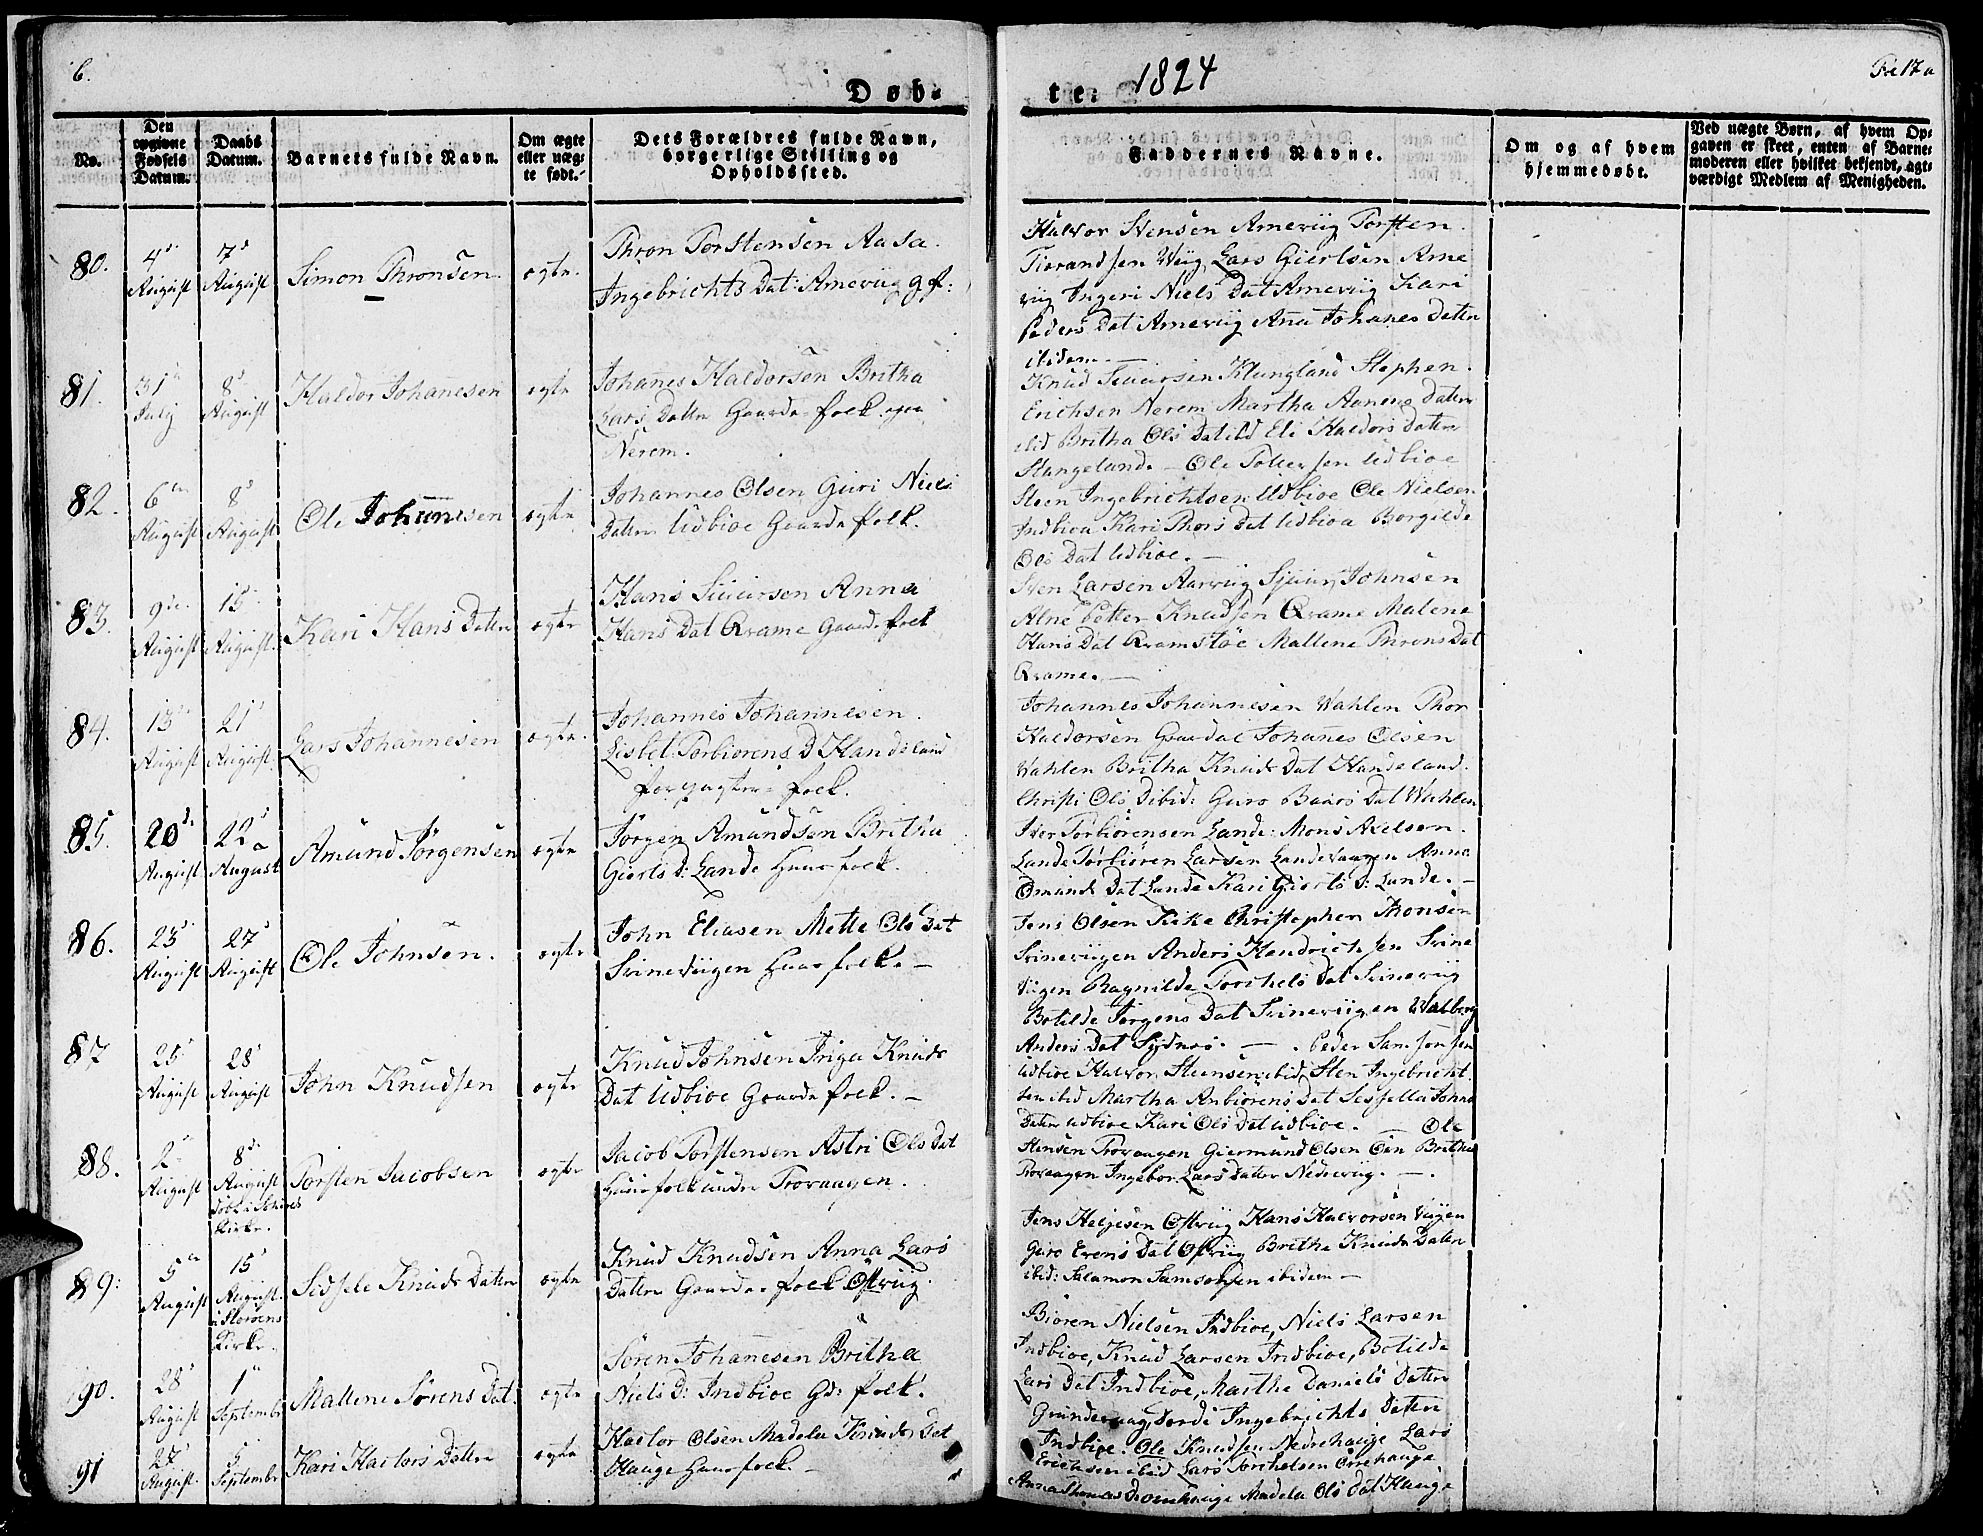 6.
Døb-
te. 1824
Fol 17a
No.
Den opgivne Fødsels Datum.
Daabs Datum.
Barnets fulde Navn.
Om ægte eller uæg- te født.
Dets Forældres fulde Navn, borgerlige Stilling og Opholdssted.
Faddernes Navne.
Om og af hvem hjemmedøbt.
Ved uægte Børn, af hvem Op-
gaven er skeet, enten af Barne-
moderen eller hvilket bekjendt, agt-
værdigt Medlem af Menigheden.
80.
4de August
7d August
Simon Thronsen
ægte.
Thron Torstensen Aasa
Ingebrichts Dat: Ameviig gf:
Halvor Stensen Ameviig Torsten
Tierandsen Viig Lars Giertsen Ame
viig Ingeri Niels Dat Ameviig Kari
Peders Dat Ameviig Aña Johanes Datter
ibidem. —
81.
31te July
8d August
Haldor Johañesen
ægte
Johañes Haldorsen Britha
Lars Datter Gaarde-folk
Nerem.
Knud Siursen Klungland Stephen
Erichsen Nerem Martha Datter
ibid Britha Ols Dat ibd Eli Haldors Datter
Stangeland. — Ole Tollefsen Udbioe
82.
6te August
8d August
Ole Johannesen
ægte
Johannes Olsen Guri Niels
Datter Udbioe Gaarde folk.
Steen Ingebrichtsen Udbioe Ole Nielsen
Indbioe Kari Thors Dat Udbioe Borgilde
Ols Dat Udbioe. —
83.
9de. August
15d August.
Kari Hans Datter
ægte
Hans Siursen Anna
Hans Dat Qvame Gaardefolk
Sven Larsen Aarviig Sjuur Johnsen
Alne Petter Knudsen Qvame Malene
Hans Dat Qvamstøe Mallene Throns Dat
Qvame. —
84.
13d August
21d August.
Lars Johannesen
ægte.
Johannes Johannesen
Lisbet Torbiørens D Handeland
forpagter-folk.
Johannes Johannesen Wahlen Thor
Haldorsen Gaardal Johanes Olsen
Wahlen Britha Knuds Dat Handeland.
Christi Ols D ibid: Guro Baars Dat Wahlen
85.
20d. August
22d August
Amund Jørgensen
ægte
Jørgen Amundsen Britha
Gierts D: Lande Huusfolk.
Iver Torbiørensen Lande: Mons Axelsen
Lande Torbiøren Larsen Landevaagen Anna
Omunds Dat Lande Kari Gierts D: Lande. —
86.
23d August
27d August
Ole Johnsen.
ægte
John Eliasen Mette Ols Dat
Svineviigen Huusfolk. —
Jens Olsen Kirke Christopher Thonsen
Svineviigen Anders Hendrichsen Svine
viigen Ragnilde Torchels Dat Svineviig
Botilde Jørgens Dat Svineviigen Walborg
Anders Dat Sydnes. — . Peder Samsonsen
87
25d August
28d August
John Knudsen
ægte
Knud Johnsen Inga Knuds
Dat Udbioe Gaardefolk. —
Udbioe Halvor Steensen ibid Sten Ingebricht
sen ibid Martha Anbiørens Dat Sessella Johns
Datter Udbioe Kari Ols Dat Udbioe. — Ole
88.
2d August
8d. August
Døbt i Kirke.
Torsten Jacobsen
ægte
Jacob Torstensen Astri Ols Dat
Huusfolk under Trovaagen.
Stensen Trovaagen Giermund Olsen Øen Britha
Trovaagen Ingebor Lars Datter Nedreviig. —.
89:
5te August
15d August.
i Skorens Kirke.
Sidsele Knuds Datter
ægte
Knud Knudsen Anna Lars
Datter Gaarde-folk Østviig.
Jens Helgesen Østviig Hans Halvorsen Viigen
Guro Evens Dat Østviig Britha Knuds Datter
ibid: Salamon Samsonsen ibidem —
90.
28d August
1te Septembr
Mallene Sørens Dat.
ægte
Søren Johañesen Britha
Niels D: Indbioe Gd: folk.
Biøren Nielsen Indbioe, Niels Larsen
Indbioe, Knud Larsen Indbioe, Botilde
Lars Dat Indbioe, Marthe Daniels Datter
Grundevaag Dorde Ingebrichts Datter
Indbioe. Ole Knudsen Nedrehauge Lars
91
27d August.
5d Septembr
Kari Hactors Datter
ægte
Hactor Olsen Madela Knuds Dat
Hauge Huusfolk. —
Erichsen ibid Lars Torchelsen Øvrehauge
Anna Hauge Madela Ols Dat Hauge